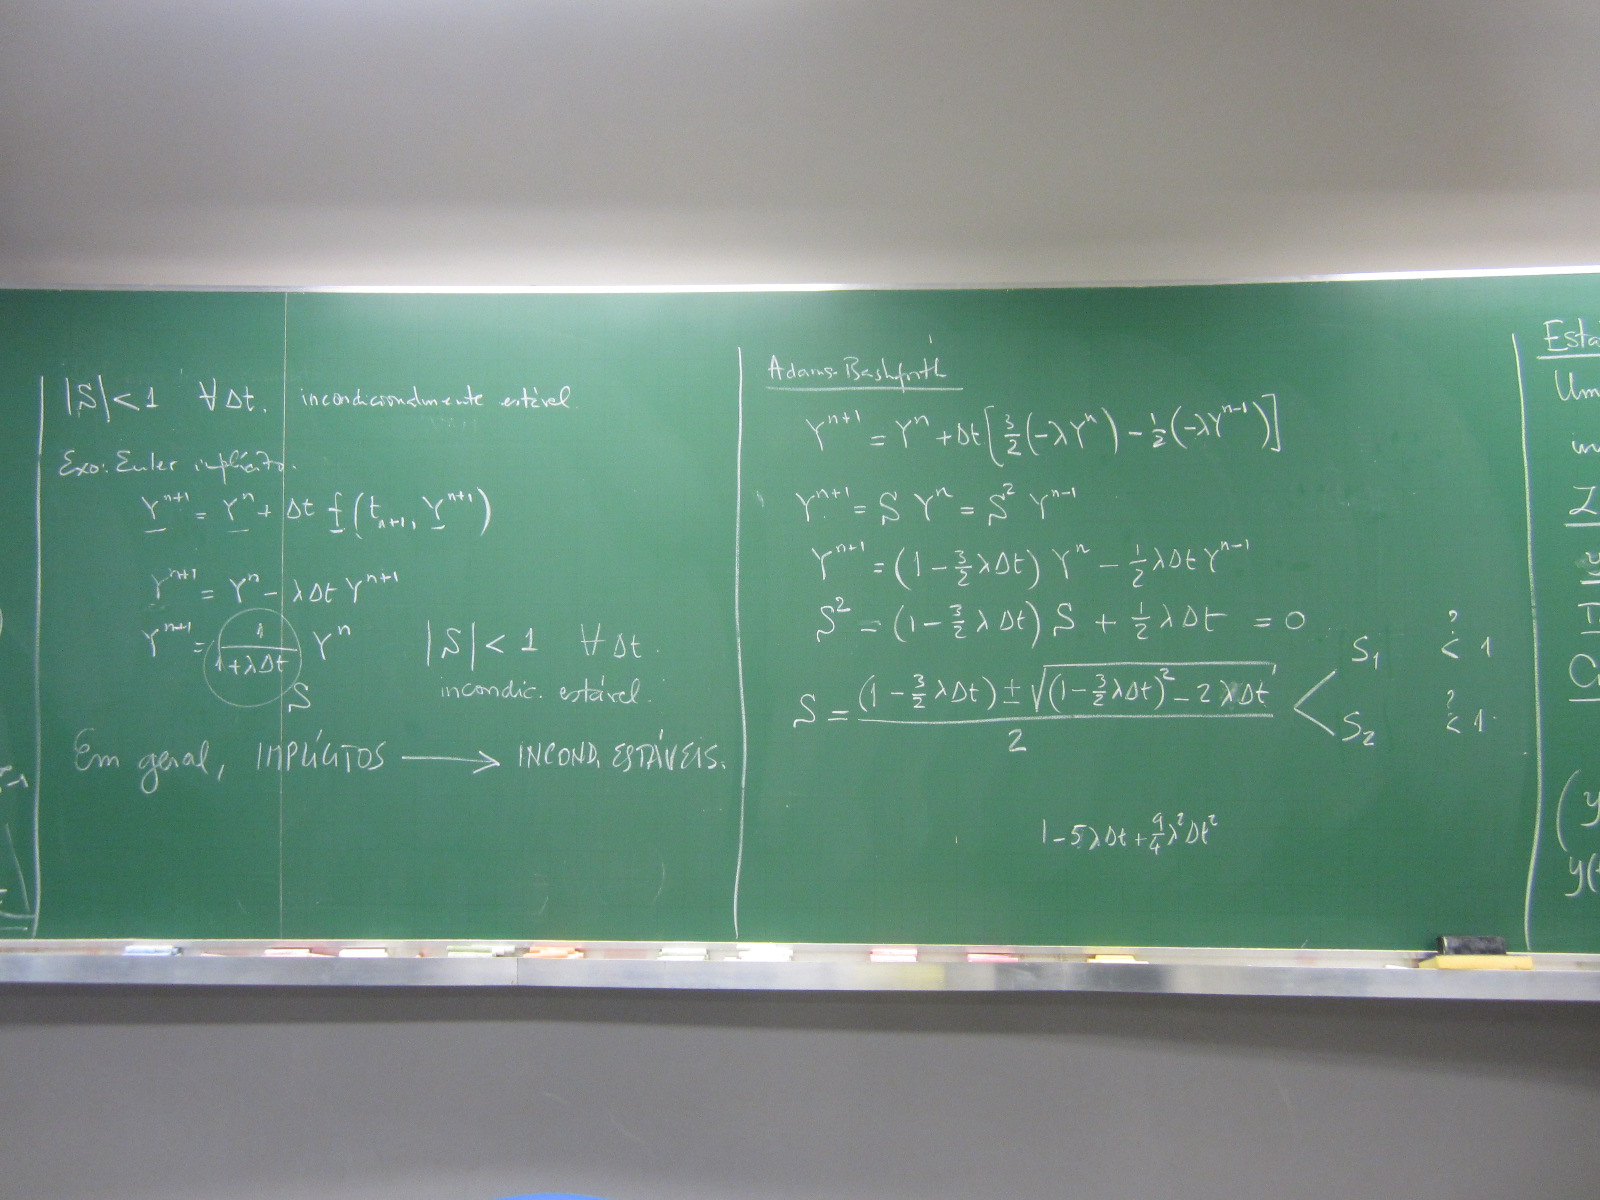 |S| < 1 ∀Δt. incondicionalmente estável.
Exo: Euler implícito.
Y^{n+1} = Y^n + Δt f(t_{n+1}, Y^{n+1})
Y^{n+1} = Y^n - λΔt Y^{n+1}
Y^{n+1} = 1/(1+λΔt) Y^n |S| < 1 ∀Δt.
S incondic. estável.
Em geral, IMPLÍCITOS ⟶ INCOND. ESTÁVEIS.
Adams-Bashforth
Y^{n+1} = Y^n + Δt[3/2(-λY^n) - 1/2(-λY^{n-1})]
Y^{n+1} = S Y^n = S^2 Y^{n-1}
Y^{n+1} = (1 - 3/2 λΔt) Y^n - 1/2 λΔt Y^{n-1}
S^2 = (1 - 3/2 λΔt) S + 1/2 λΔt = 0
S = ((1 - 3/2 λΔt) ± √((1 - 3/2 λΔt)^2 - 2λΔt))/2
S_1 ?< 1
S_2 ?< 1.
1 - 5λΔt + 9/4 λ^2Δt^2
Um
y(